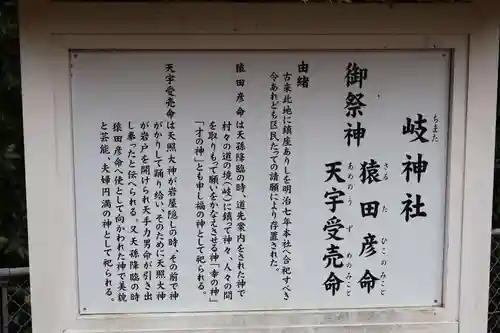 岐神社
ちまた
御祭神
猿田彦命
さる た ひこのみこと
天宇受売命
あめのう ず めのみこと
由緒
古来此地に鎮座ありしを明治七年本社へ合祀すべき
令あれども区民たっての請願により存置された。
猿田彦命は天孫降臨の時、道先案内をされた神で
村々の道の境(岐)に鎮って神々、人々の間
を取りもって願いをかなえさせる神「幸の神」
「才の神」とも申し福の神として祀られる。
天宇受売命は天照大神が岩屋隠しの時、その前で神
がかりして踊り給い、そのために天照大神
が岩戸を開けられ天手力男命が引き出
し奉ったと伝へられる。又天孫降臨の時
猿田彦命へ使として向かわれた神で美貌
と芸能、夫婦円満の神として祀られる。